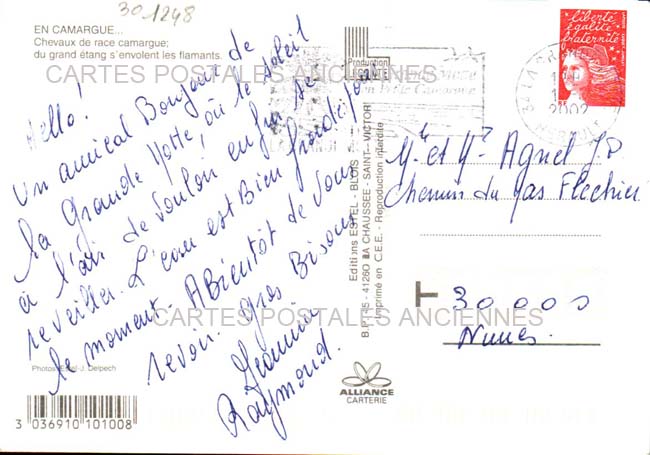 30 1248
EN CAMARGUE...
Chevaux de race camargue;
du grand étang s'envolent les flamants.
CARTES POSTALES ANCIENNES
Hello!
Un amical Bonjour de
la Grande Motte, où le soleil
a l'air de vouloir enfin se
reveiller. L'eau est Bien froide pour
le moment. A Bientôt de vous
revoir. gros Bisous
Jeannine
Raymond.
CARTES POSTALES ANCIENNES
Photos Estel-J. Delpech
3 036910 101008
Production
LECONTE
Editions ESTEL - BLOIS
B.P. 785 - 41260 LA CHAUSSEE-SAINT-VICTOR
Imprimé en C.E.E. - Reproduction interdite
ALLIANCE
CARTERIE
liberté
égalité
fraternité
2002
Mme et Mr Agnel J.P
Chemin du Mas Flechier
30.000
Nimes.